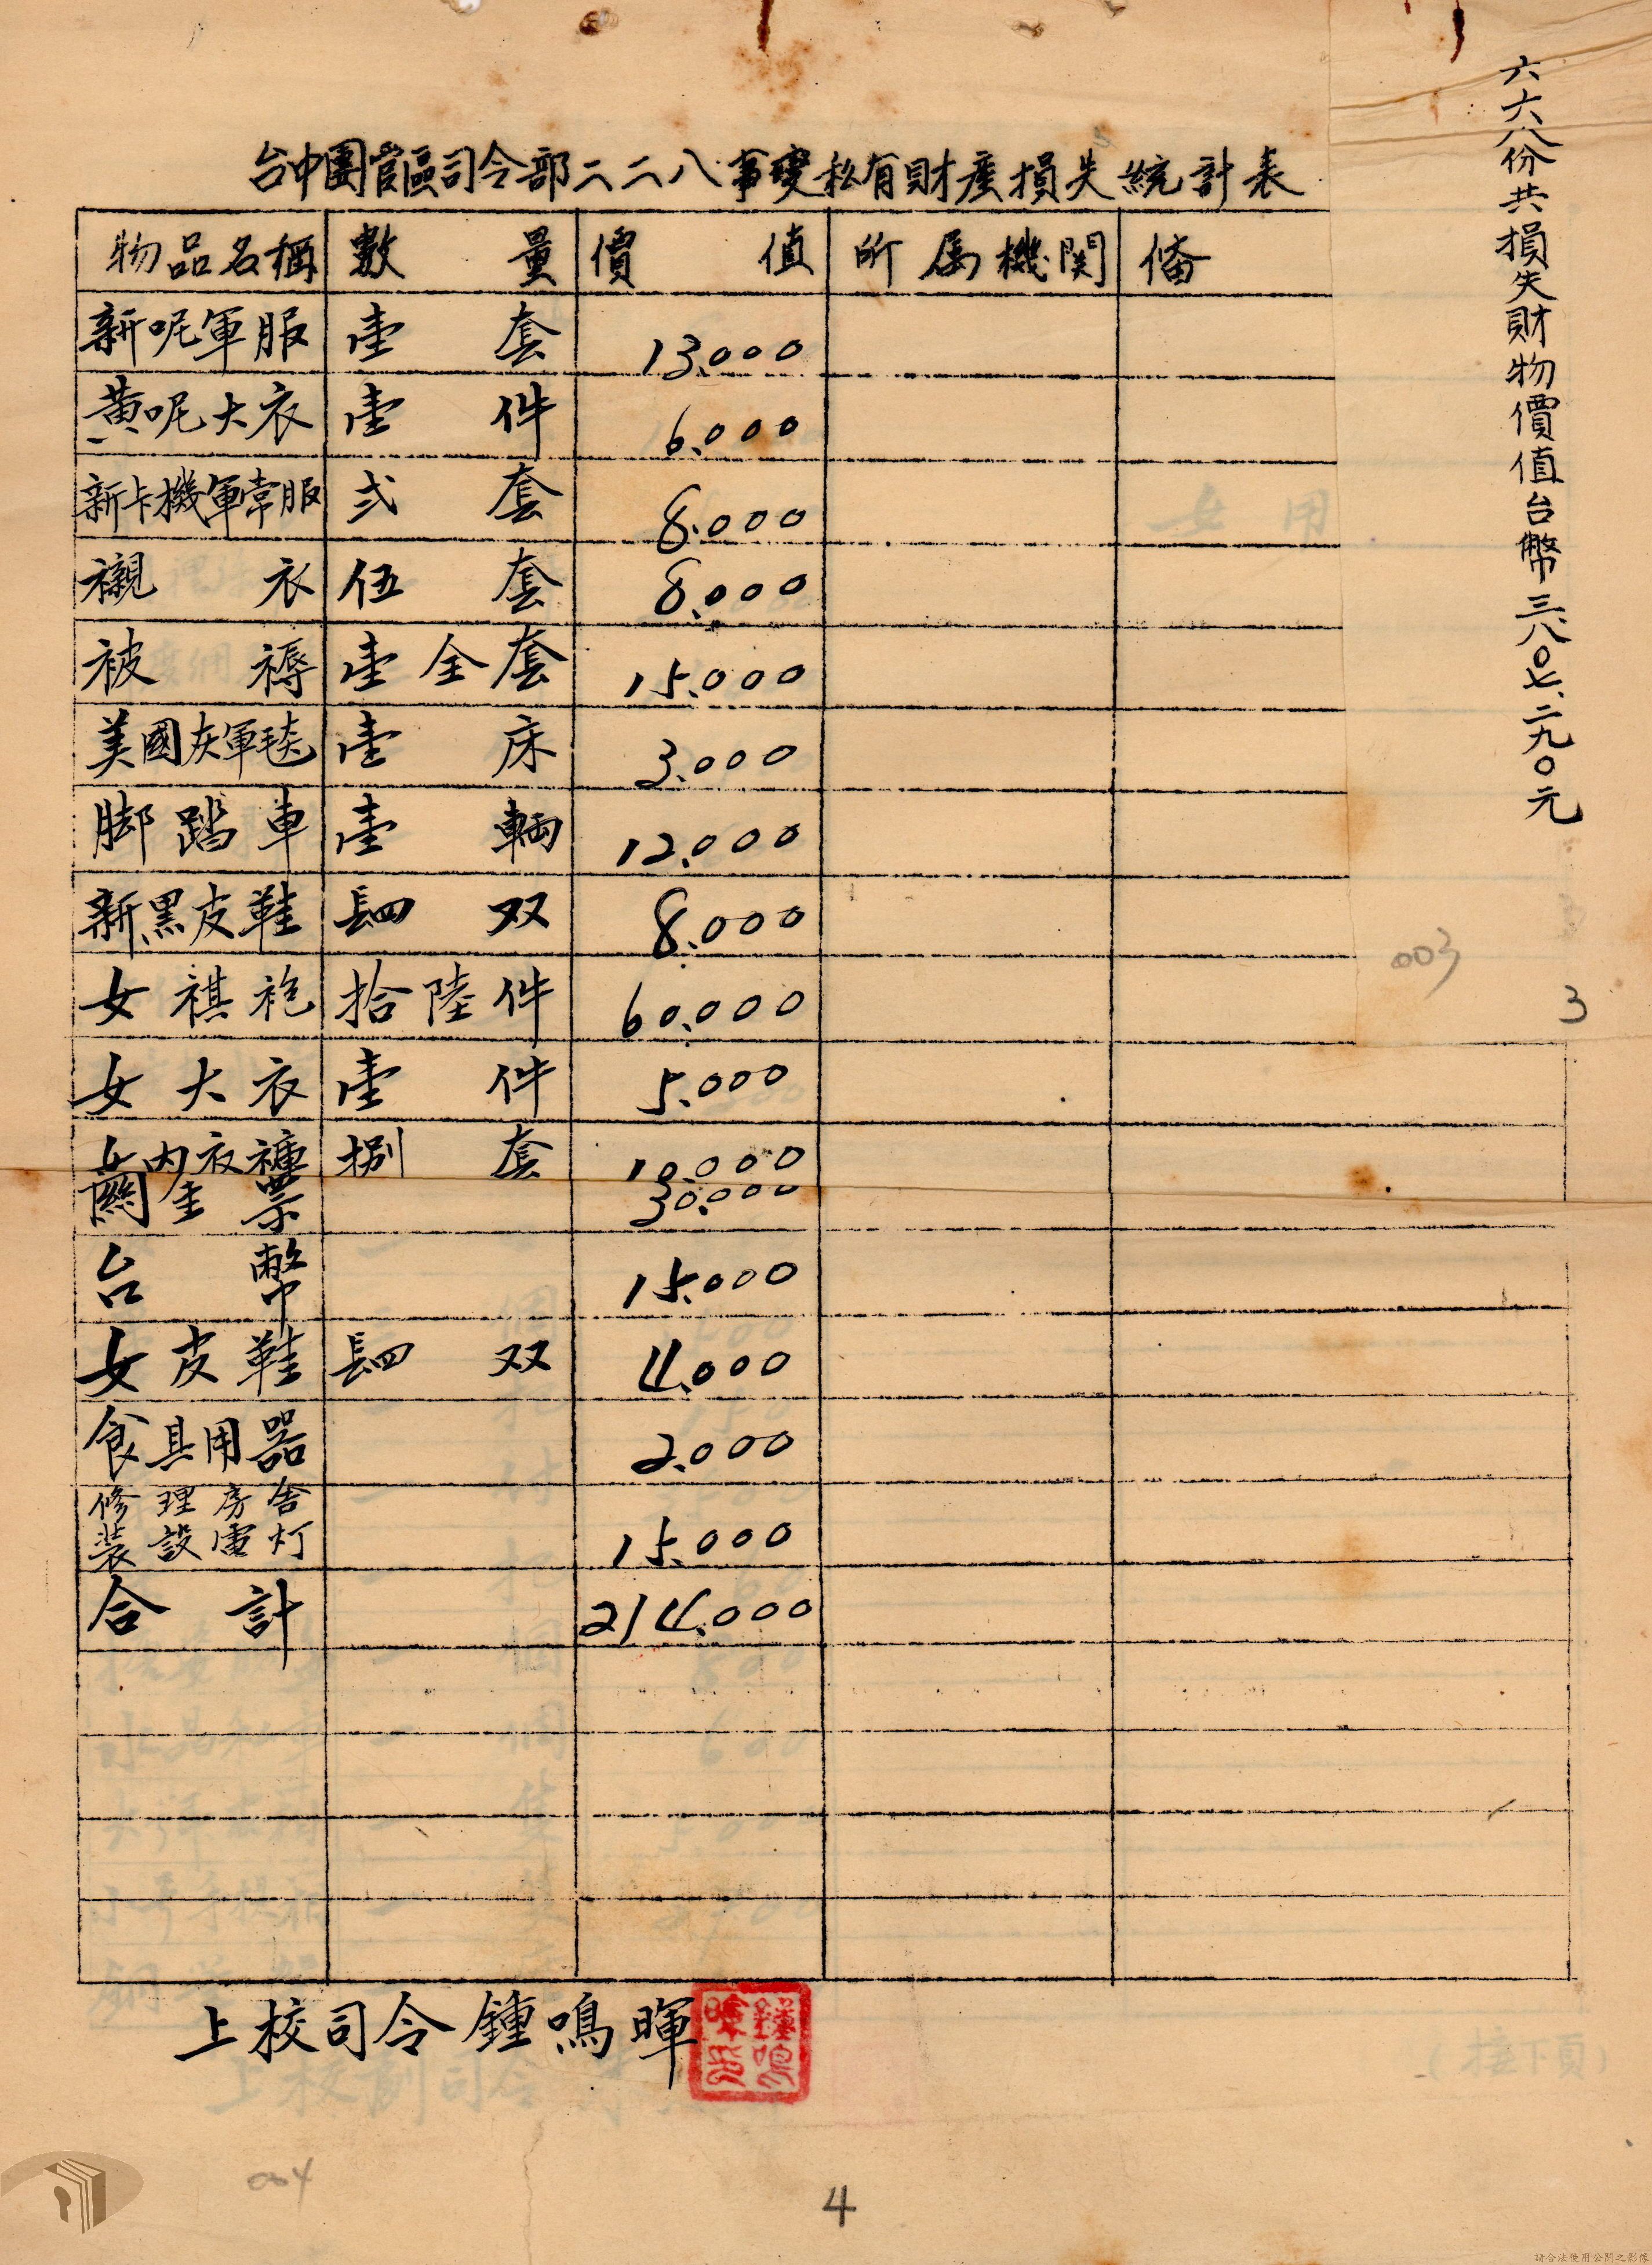 台中團管區司令部二二八事變私有財產損失統計表
物品名稱 數量 價值 所属機関 俻
新呢軍服 壹套 13.000
黃呢大衣 壹件 6.000
新卡機軍常服 弍套 8.000
襯衣 伍套 8.000
被褥 壹全套 15.000
美國灰軍毯 壹床 3.000
脚踏車 壹輛 12.000
新黑皮鞋 肆双 8.000
女祺袍 拾陸件 60.000
女大衣 壹件 5.000
女内衣褲 捌套 10.000
關金票 30.000
台幣 15.000
女皮鞋 肆双 4.000
食具用器 2.000
修理房舍
装設電灯 15.000
合計 214.000
上校司令鍾鳴暉
鍾鳴暉
六六八份共損失財物價值台幣三、八〇七、二九〇元
003
3
004
4
（接下頁）
請合法使用公開之影像